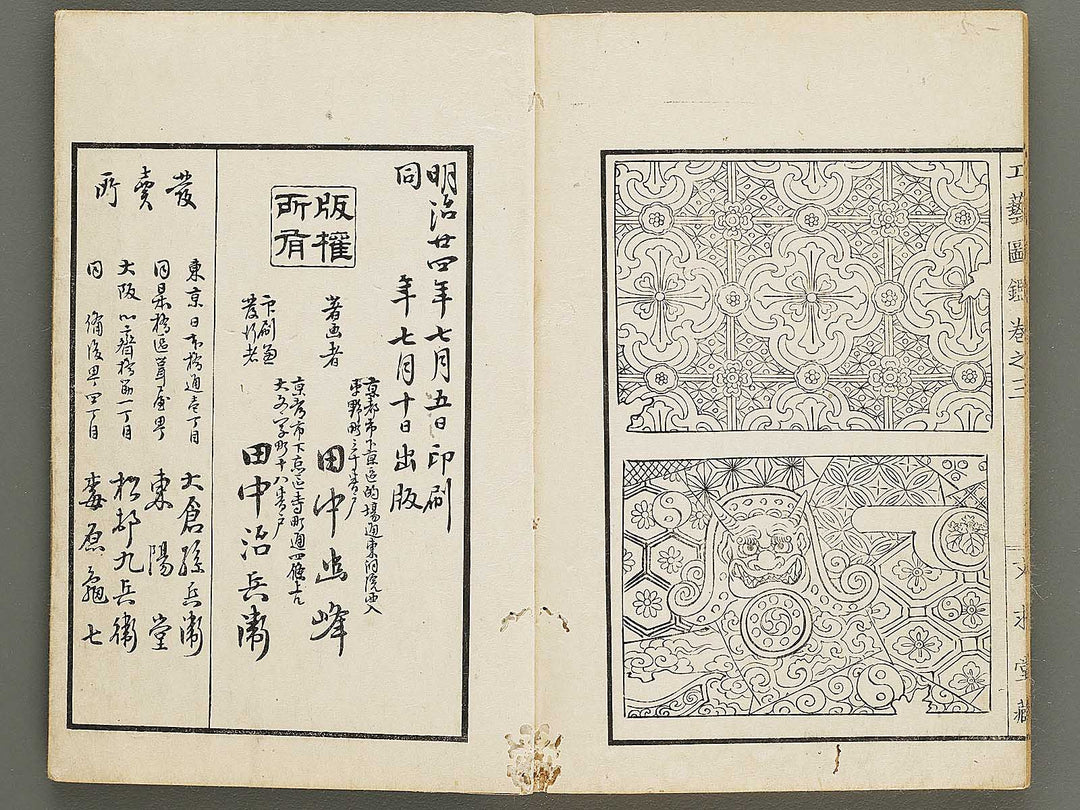 工藝圖鑑卷之三
一 文求堂藏
明治廿四年七月五日印刷
同年七月十日出版
版權
所有
著画者
京都市下京區的場通東洞院西入
田中
峰
印刷兼
發行者
京都市下京區寺町通四條上
大文字町十八番戸
田中治兵衛
發賣所
東京日本橋通壱丁目
大倉孫兵衛
同京橋區
東陽堂
大阪心齋橋
丁目
松邨九兵衛
同備後町四丁目
梅原亀七